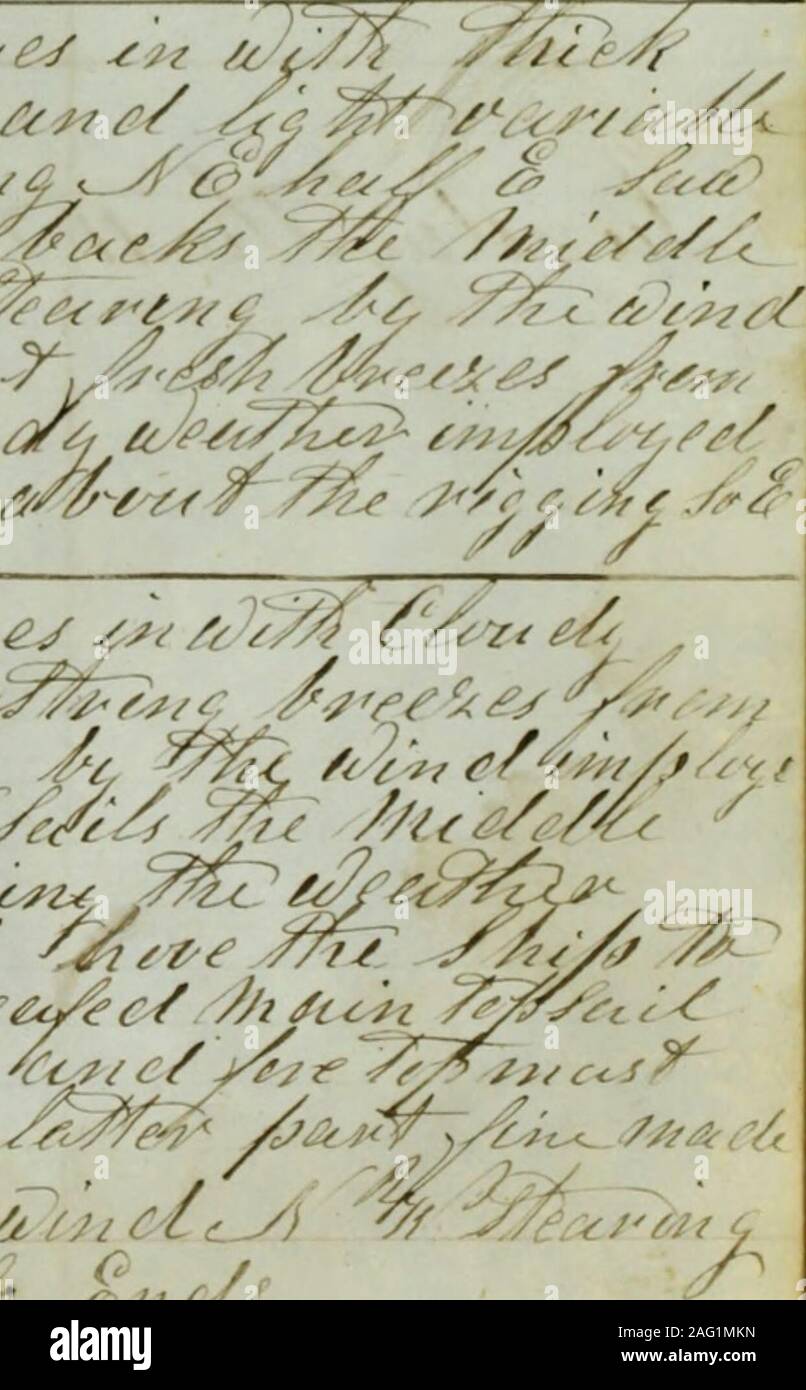 es in with thick
and light variable
ng N E half E Saw
backs the Middle
tearing by the wind
t fresh breezes from
dy weather imployed
about the rigging So E
es in with Cloudy
string breezes from
by the wind imploye
Sails the Middle
ing the weather
hove the Ship to
eafed Main topsail
and fore topmast
latter part fine made
wind N W Stearing
Ends
alamy
Image ID: 2AG1MKN
www.alamy.com